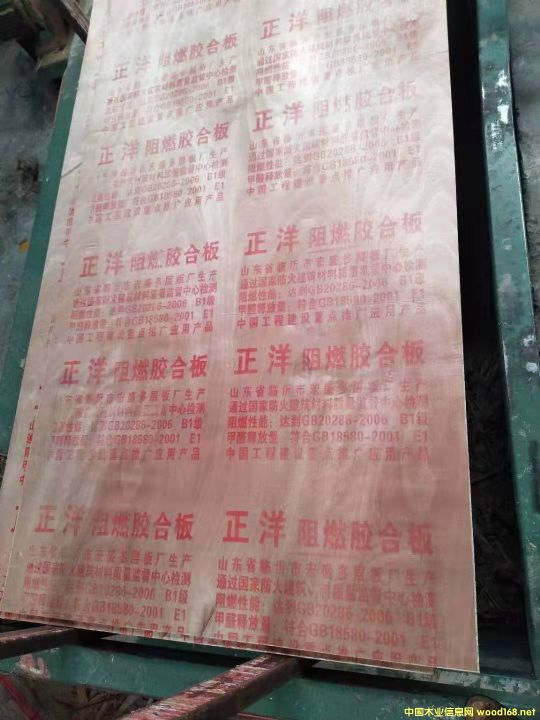 正洋 阻燃胶合板
山东省临沂市宏盛多层板厂生产
通过国家防火建筑材料质量监督中心检测
阻燃性能：达到GB20286-2006 B1级
甲醛释放量：符合GB18580-2001 E1
中国工程建设重点推广应用产品
正洋 阻燃胶合板
山东省临沂市宏盛多层板厂生产
通过国家防火建筑材料质量监督中心检测
阻燃性能：达到GB20286-2006 B1级
甲醛释放量：符合GB18580-2001 E1
中国工程建设重点推广应用产品
正洋 阻燃胶合板
山东省临沂市宏盛多层板厂生产
通过国家防火建筑材料质量监督中心检测
阻燃性能：达到GB20286-2006 B1级
甲醛释放量：符合GB18580-2001 E1
中国工程建设重点推广应用产品
正洋 阻燃胶合板
山东省临沂市宏盛多层板厂生产
通过国家防火建筑材料质量监督中心检测
阻燃性能：达到GB20286-2006 B1级
甲醛释放量：符合GB18580-2001 E1
中国工程建设重点推广应用产品
正洋 阻燃胶合板
山东省临沂市宏盛多层板厂生产
通过国家防火建筑材料质量监督中心检测
阻燃性能：达到GB20286-2006 B1级
甲醛释放量：符合GB18580-2001 E1
中国工程建设重点推广应用产品
正洋 阻燃胶合板
山东省临沂市宏盛多层板厂生产
通过国家防火建筑材料质量监督中心检测
阻燃性能：达到GB20286-2006 B1级
甲醛释放量：符合GB18580-2001 E1
中国工程建设重点推广应用产品
正洋 阻燃胶合板
多层板厂生产
建筑材料质量监督中心检测
GB20286-2006 B1级
GB18580-2001 E1
正洋 阻燃胶合板
山东省临沂市宏盛多层板厂生产
通过国家防火建筑
质量监督中心检测
阻燃性能：达到GB20286-2006 B1级
甲醛释放量：符合GB18580-2001 E1
中国工程建设重点推广应用产品
中国木业信息网 wood168.net